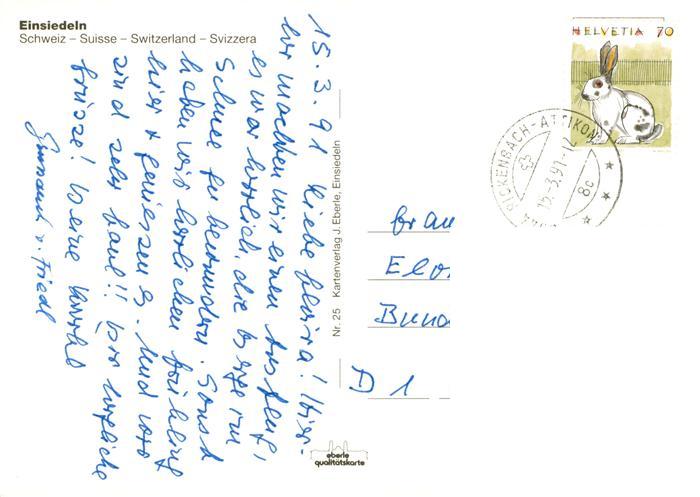 Einsiedeln
Schweiz – Suisse – Switzerland – Svizzera
15.3.91 Liebe Elvira! Hier-
her machten wir einen Ausflug,
es war herrlich, die Berge im
Schnee zu bewundern. Sonst
haben wir herrlichen Frühling
hier + geniessen es. Und wir
sind sehr faul!! Ganz herzliche
Grüsse! Deine
u. Friedl
Nr. 25 Kartenverlag J. Eberle, Einsiedeln
eberle
qualitätskarte
HELVETIA 70
RICKENBACH-ATTIKON
15.-3.91-12
8c
Frau
Elv
D 1